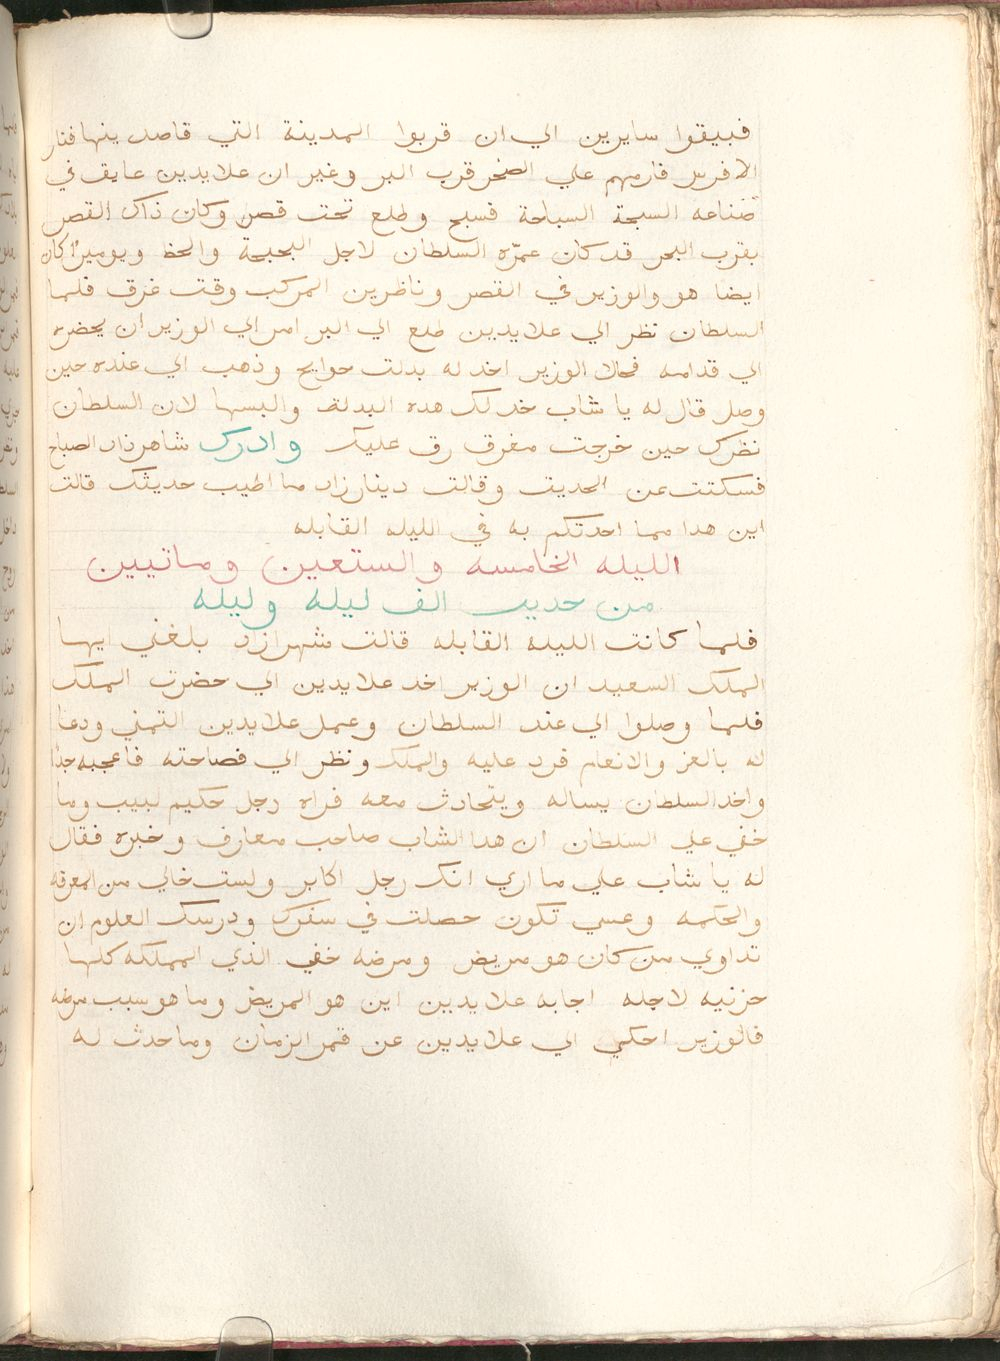 فبيقوا سايرين الي ان قربوا المدينة التي قاصدينها فتار
الافرس فارمهم علي الصخر قرب البر وغير ان علايدين عايق في
صناعه السبحة السباحة فسبح وطلع تحت قصر وكان ذاك القصر
بقرب البحر قد كان عمّره السلطان لاجل البحبحة والحظ ويوميدٍ كان
ايضا هو والوزير في القصر وناظرين المركب وقت غرق فلما
السلطان نظر الي علايدين طلع الي البر امر الي الوزير ان يحضره
الي قدامه فحالا الوزير اخد له بدلت حوايج وذهب الي عنده حين
وصل قال له يا شاب خد لك هده البدلة والبسها لان السلطان
نظرك حين خرجت مغرق رق عليك وادرك شاهرزاد الصباح
فسكتت عن الحديت وقالت دينارزاد ما اطيب حديثك قالت
اين هدا مما احدتكم به في الليله القابله
الليله الخامسه والستعين وماتيين
من حديت الف ليله وليله
فلما كانت الليله القابله قالت شهرازاد بلغني ايها
الملك السعيد ان الوزير اخد علايدين الي حضرت الملك
فلما وصلوا الي عند السلطان وعمل علايدين التمني ودعا
له بالعز والانعام فرد عليه والملك ونظر الي فصاحته فاعجبه جدًا
واخد السلطان يساله ويتحادث معه فراه رجل حكيم لبيب وما
خفي علي السلطان ان هدا الشاب صاحب معارف وخبره فقال
له يا شاب علي ما اري انك رجل اكابر ولست خالي من المعرفه
والحكمه وعسي تكون حصلت في سفرك ودرسك العلوم ان
تداوي من كان هو مريض ومرضه خفي الذي المملكه كلها
حزنيه لاجله اجابه علايدين اين هو المريض وما هو سبب مرضه
فالوزير احكي الي علايدين عن قمر الزمان وما حدث له